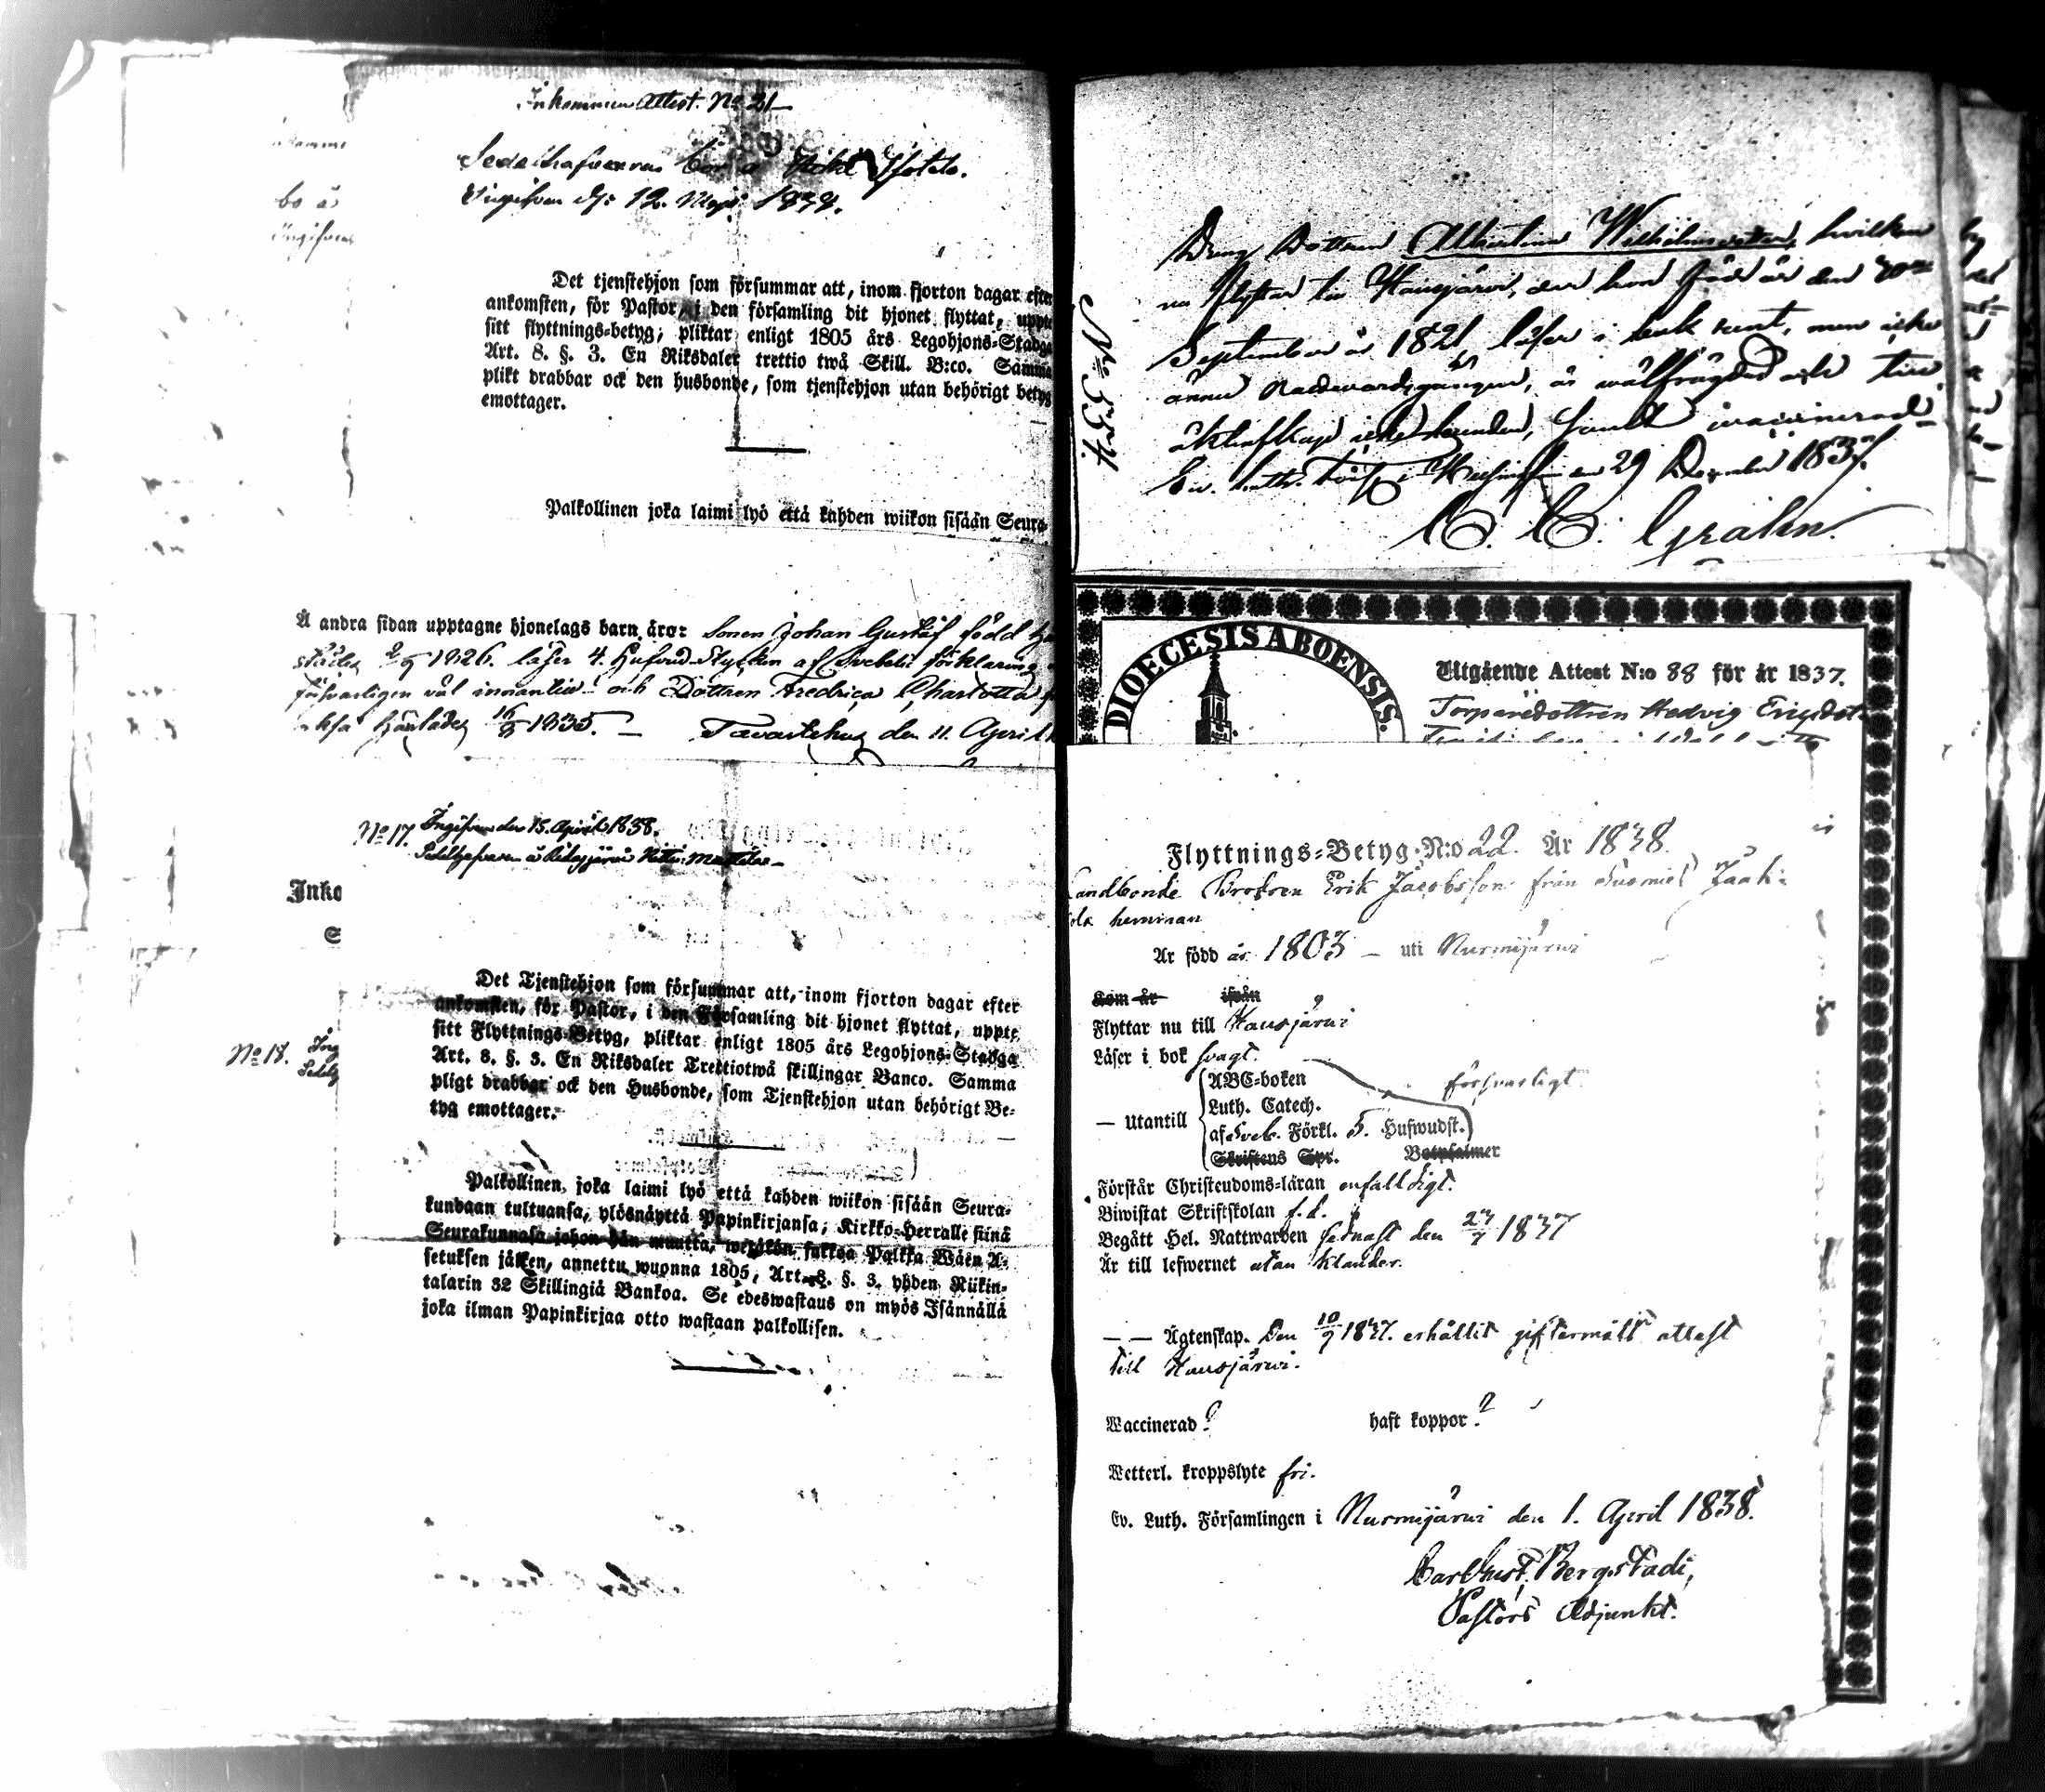 Inkommen Attest. No 21
Sedelhafvaren bor å
Ingifven d: 12. Maji 1838.
Det tjenstehjon som försummar att, inom fjorton dagar efter
ankomsten, för Pastor, i den församling dit hjonet flyttat, uppte
sitt flyttnings-betyg; pliktar enligt 1805 års Legohjons-Stadga
Art. 8. §. 3. En Riksdaler trettio twå Skill. B:co. Samma
plikt drabbar ock den husbonde, som tjenstehjon utan behörigt betyg
emottager.
Palkollinen joka laimi lyö että kahden wiikon sisään Seura-
Å andra sidan upptagne hjonelags barn äro: Sonen Johan Gustaf född
1826. läser 4. Hufvud-Stycken af Svebelii förklaring
försvarligen väl innantill och Dottren Fredrica Charlotta
1835. — Tavastehus den 11. April
No 17. Ingifven den 15. April 1838.
Inko
No 18.
Det Tjenstehjon som försummar att, inom fjorton dagar efter
ankomsten, för Pastor, i den Församling dit hjonet flyttat, uppte
sitt Flyttnings-Betyg, pliktar enligt 1805 års Legohjons-Stadga
Art. 8. §. 3. En Riksdaler Trettiotwå skillingar Banco. Samma
pligt drabbar ock den Husbonde, som Tjenstehjon utan behörigt Be-
tyg emottager.
Palkollinen, joka laimi lyö että kahden wiikon sisään Seura-
kundaan tultuansa, ylösnäyttä Papinkirjansa, Kirkko-Herralle siinä
Seurakunnasa johon hän muutta, wetäkön sakkoa Palkka Wäen A-
setuksen jälken, annettu wuonna 1805, Art. 8. §. 3. yhden Riikin-
talarin 32 Skillingiä Bankoa. Se edeswastaus on myös Isännällä
joka ilman Papinkirjaa otto wastaan palkollisen.
No 554.
Dottren Albertina Wilhelmsdotter, hvilken
nu flyttar till Hausjärvi, der hon född är den
September år 1821 läser i bok rent, men icke
ännu Nattvardsgången, är välfrägdad och till
äktenskap icke bunden, samt vaccinerad
Ev. Luth. Förs. i Helsingfors den 29 December 1837.
Grahn.
DIOECESIS ABOENSIS.
Utgående Attest N:o 88 för år 1837.
Torparedottren Hedvig Ericsdot
Flyttnings-Betyg N:o 22. År 1838.
Landbonde Brodren Erik Jacobsson från Suomies Jaak-
kola hemman
Är född år 1803 — uti Nurmijärvi
Kom år ifrån
Flyttar nu till Hausjärvi
Läser i bok svagt.
— Utantill
ABC-boken försvarligt
Luth. Catech.
af Sveb. Förkl. 5. Hufwudst.
Skriftens Spr. Botpsalmer
Förstår Christendoms-läran enfalldigt.
Biwistat Skriftskolan f. d.
Begått Hel. Nattwarden sednast den 23/7 1837
Är till lefwernet utan klander.
— — Ägtenskap. Den 10/9 1837. erhållit giftermåls attest
till Hausjärvi.
Waccinerad? haft koppor?
Wetterl. kroppslyte fri.
Ev. Luth. Församlingen i Nurmijärvi den 1. April 1838.
Carl Gust. Bergstadi,
Pastors Adjunkt.